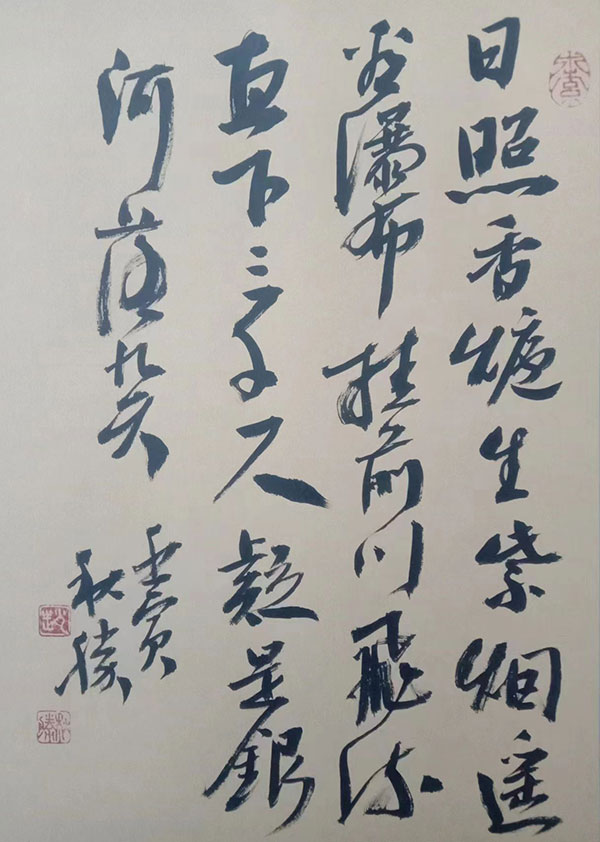 日照香爐生紫烟遥
看瀑布挂前川飛流
直下三千尺疑是銀
河落九天
壬寅
秋勝